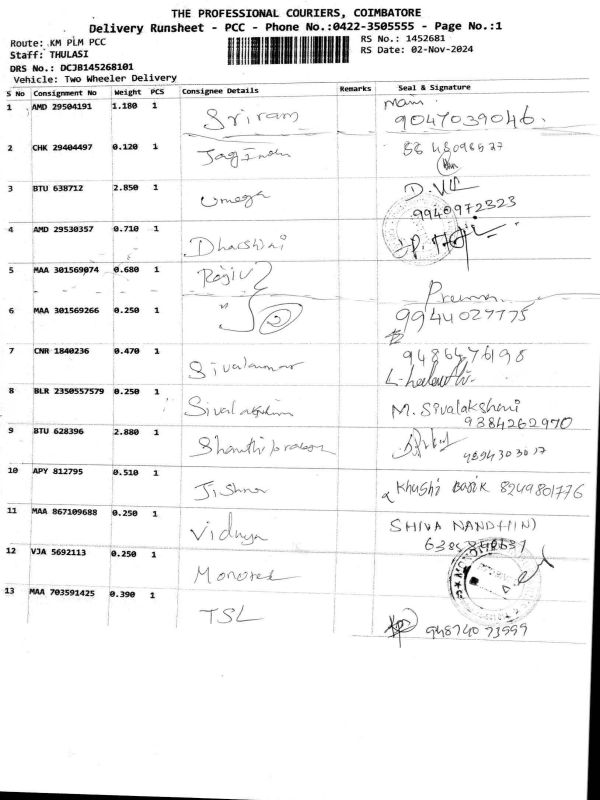 THE PROFESSIONAL COURIERS, COIMBATORE
Delivery Runsheet - PCC - Phone No.:0422-3505555 - Page No.:1
Route: KM PLM PCC
RS No.: 1452681
Staff: THULASI
RS Date: 02-Nov-2024
DRS No.: DCJB145268101
Vehicle: Two Wheeler Delivery
S No Consignment No Weight PCS Consignee Details Remarks Seal & Signature
1 AMD 29504191 1.180 1 Sriram Mani 9047039046
2 CHK 29404497 0.120 1
3 BTU 638712 2.850 1 Omega 9940972323
4 AMD 29530357 0.710 1 Dharshini
5 MAA 301569074 0.680 1 Rajiv
6 MAA 301569266 0.250 1 9944027775
7 CNR 1840236 0.470 1 9486476198
8 BLR 2350557579 0.250 1 M. Sivalakshmi
9384262970
9 BTU 628396 2.880 1
10 APY 812795 0.510 1 Jishnu Khushi 8249801776
11 MAA 867109688 0.250 1 Vidhya SHIVA NANDHINI
12 VJA 5692113 0.250 1
13 MAA 703591425 0.390 1 TSL 94874073999